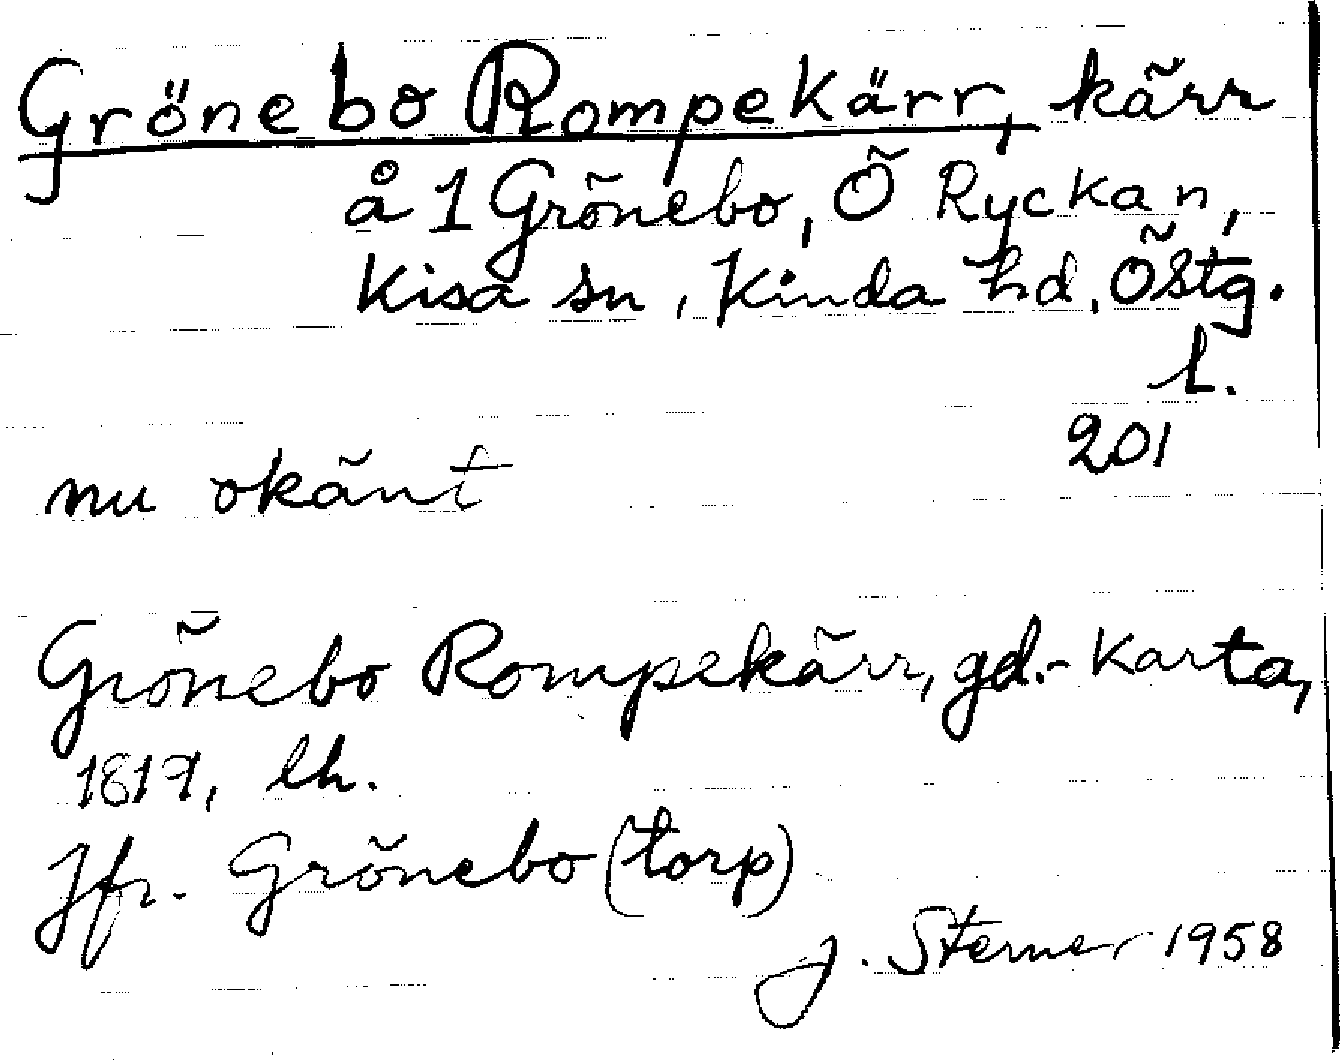 Grönebo Rompekärr, kärr
å 1 Grönebo, Ö Ryckan,
Kisa sn, Kinda hd, Östg.
l.
201
nu okänt
Grönebo Rompekärr, gd.- Karta,
1817, lh.
Jfr. Grönebo (torp)
J. Sterner 1958